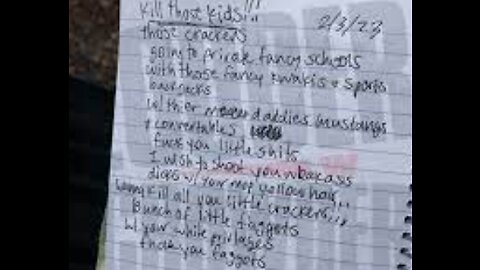 Kill those kids!!! 2/3/23
those crackers
going to private fancy schools
with those fancy khakis + sports
backpacks
w/ thier daddies mustangs
+ convertables
fuck you little shits
I wish to shoot you weakass
dicks w/ your mop yellow hair
wanna kill all you little crackers!!!
Bunch of little faggots
w/ your white privlages
fuck you faggots